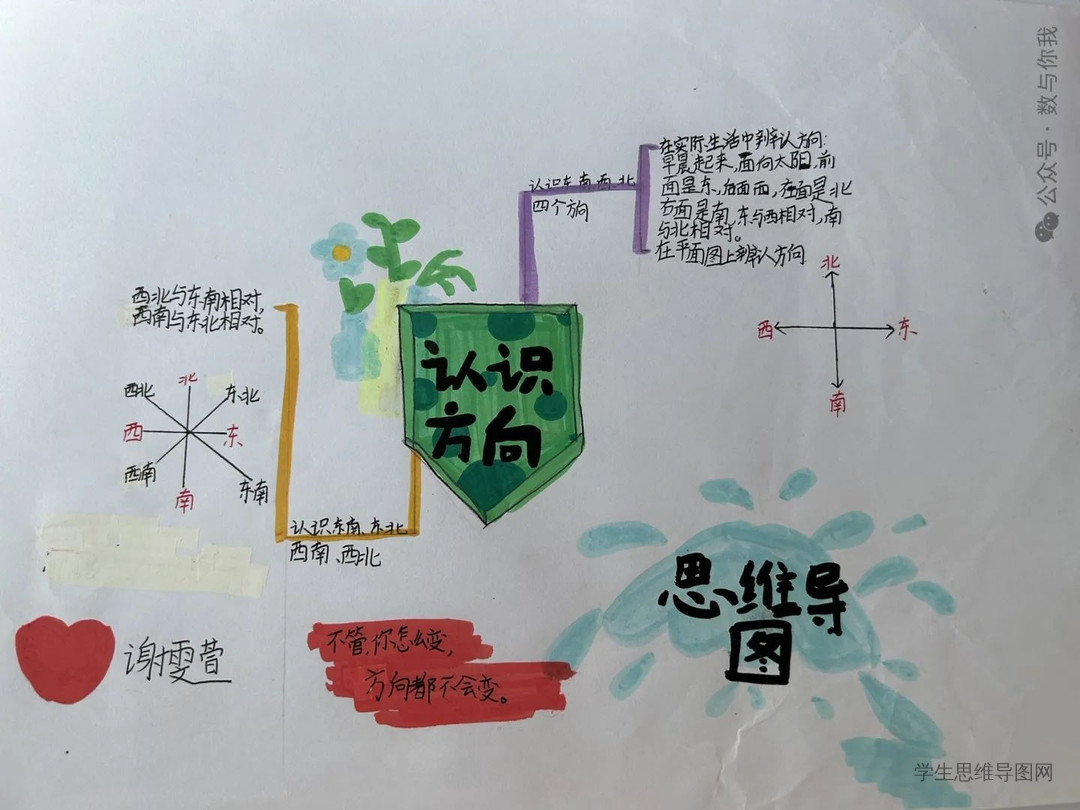 公众号·数与你我
在实际生活中辨认方向:
早晨起来,面向太阳,前
面是东,后面西,左面是北
右面是南,东与西相对,南
与北相对。
在平面图上辨认方向
认识东、南、西、北
四个方向
北
西
东
南
认识
方向
西北与东南相对,
西南与东北相对。
西北
北
东北
西
东
西南
南
东南
认识东南、东北
西南、西北
思维导
图
谢雯萱
不管你怎么变,
方向都不会变。
学生思维导图网